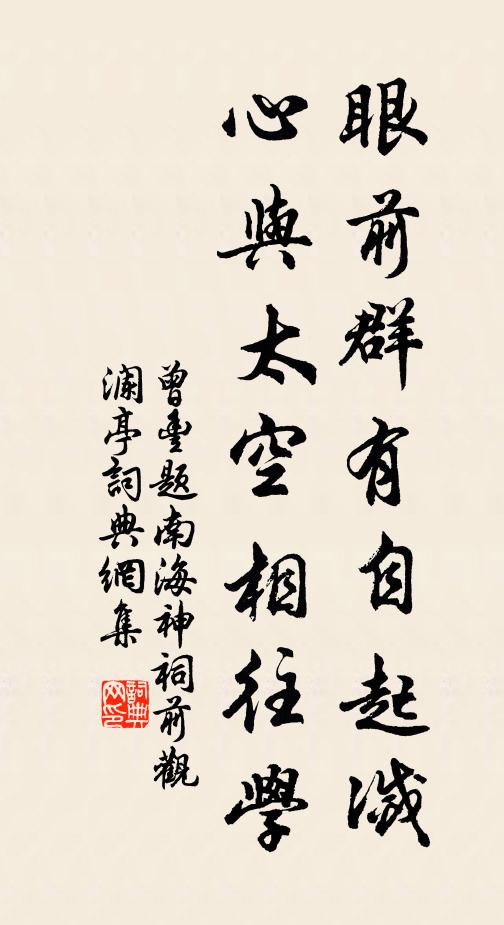 眼前群有自起滅
心與太空相往學
曾豐題南海神祠前觀
瀾亭詞典網集
詞典
网印